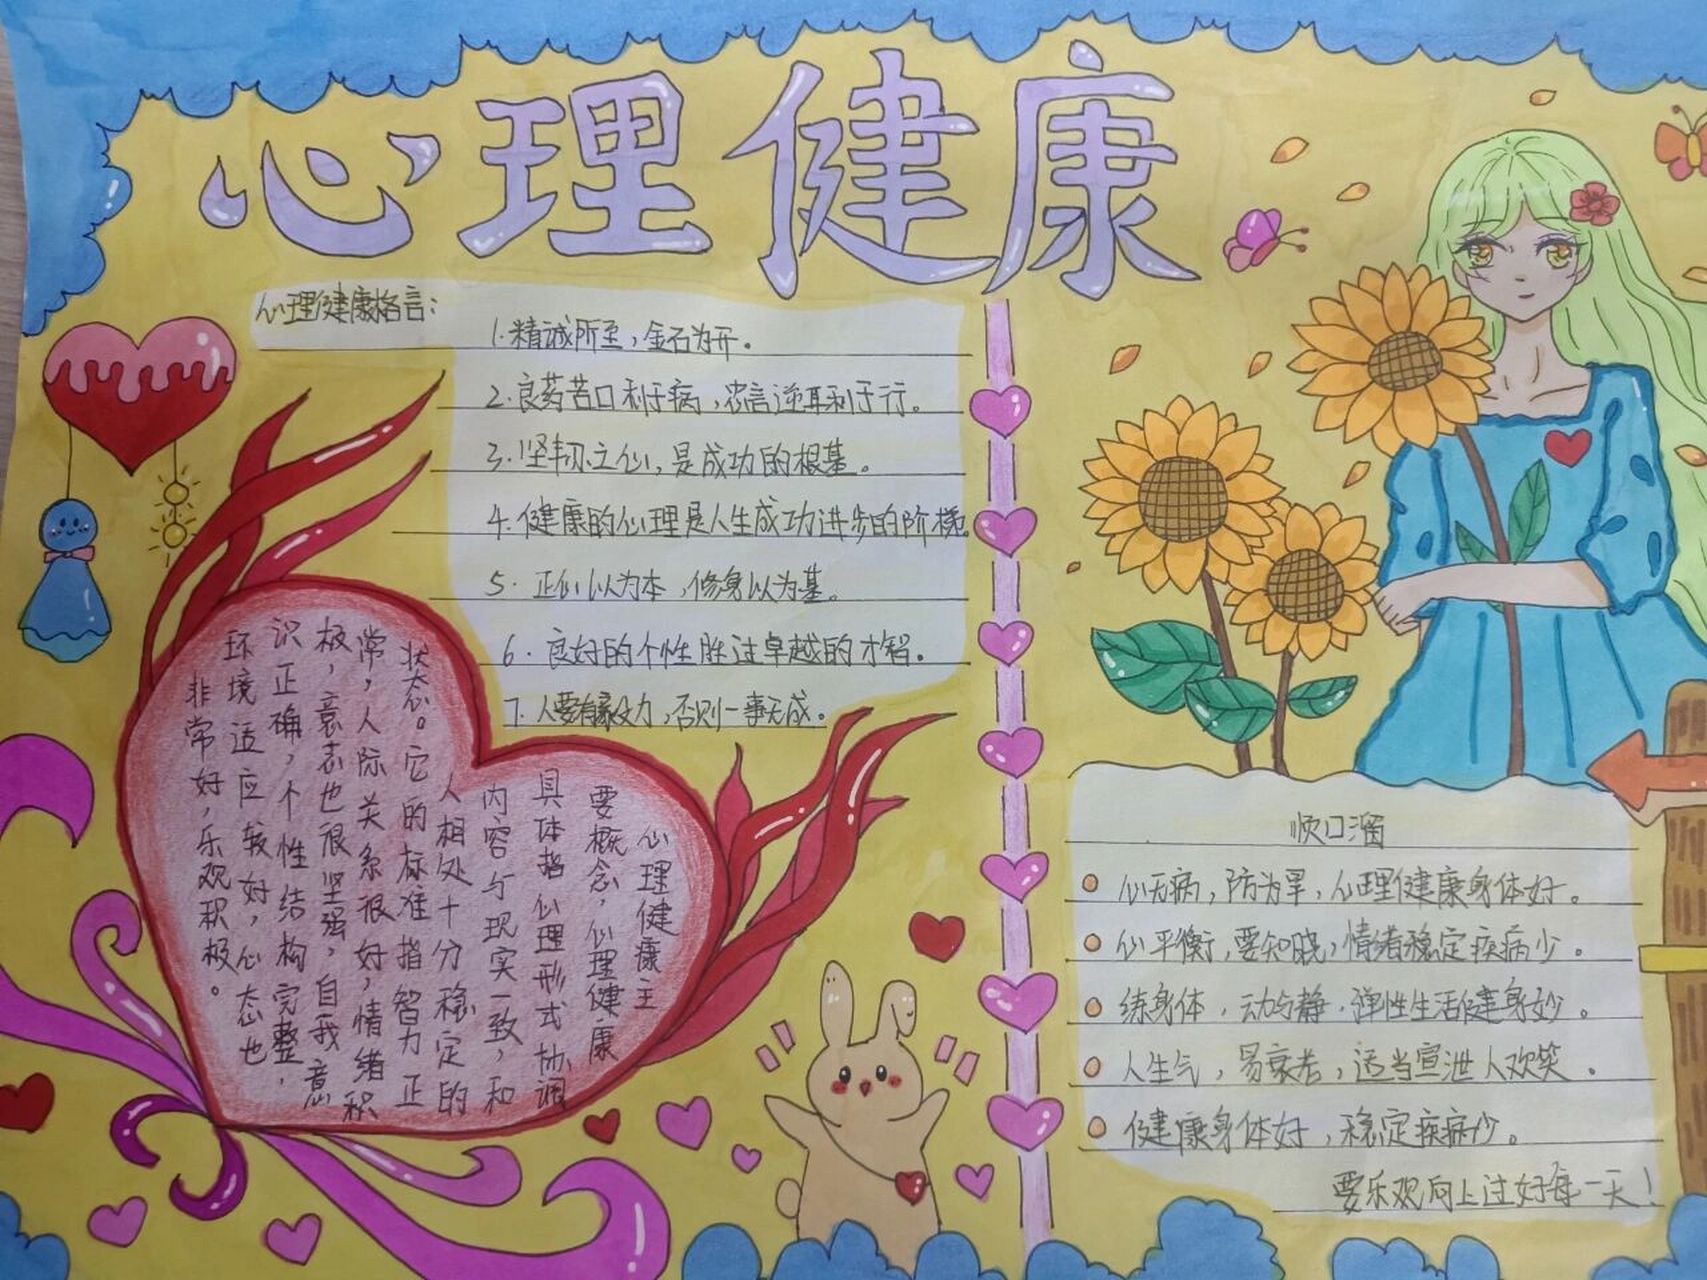 心理健康
心理健康格言：
1.精诚所至，金石为开。
2.良药苦口利于病，忠言逆耳利于行。
3.坚韧之心，是成功的根基。
4.健康的心理是人生成功进步的阶梯
5.正心以为本，修身以为基。
6.良好的个性胜过卓越的才智。
7.人要有毅力，否则一事无成。
心理健康主
要概念，心理健康
具体指心理形式协调
内容与现实一致，和
人相处十分稳定的
状态。它的标准指智力正
常，人际关系很好，情绪积
极，意志也很坚强，自我意
识正确，个性结构完整，
环境适应较好，心态也
非常好，乐观积极。
顺口溜
心无病，防为早，心理健康身体好。
心平衡，要知晓，情绪稳定疾病少。
练身体，动与静，弹性生活健身妙。
人生气，易衰老，适当宣泄人欢笑。
健康身体好，稳定疾病少。
要乐观向上过好每一天！